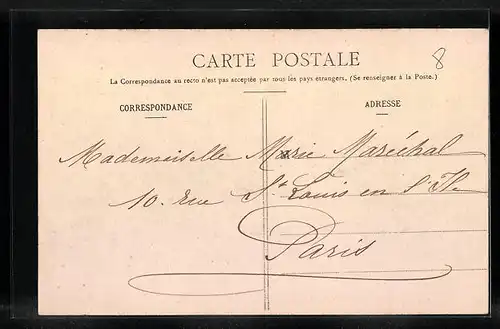 CARTE POSTALE
8
La Correspondance au recto n'est pas acceptée par tous les pays étrangers. (Se renseigner à la Poste.)
CORRESPONDANCE
ADRESSE
Mademoiselle Marie Maréchal
10. rue St Louis en l'Ile
Paris